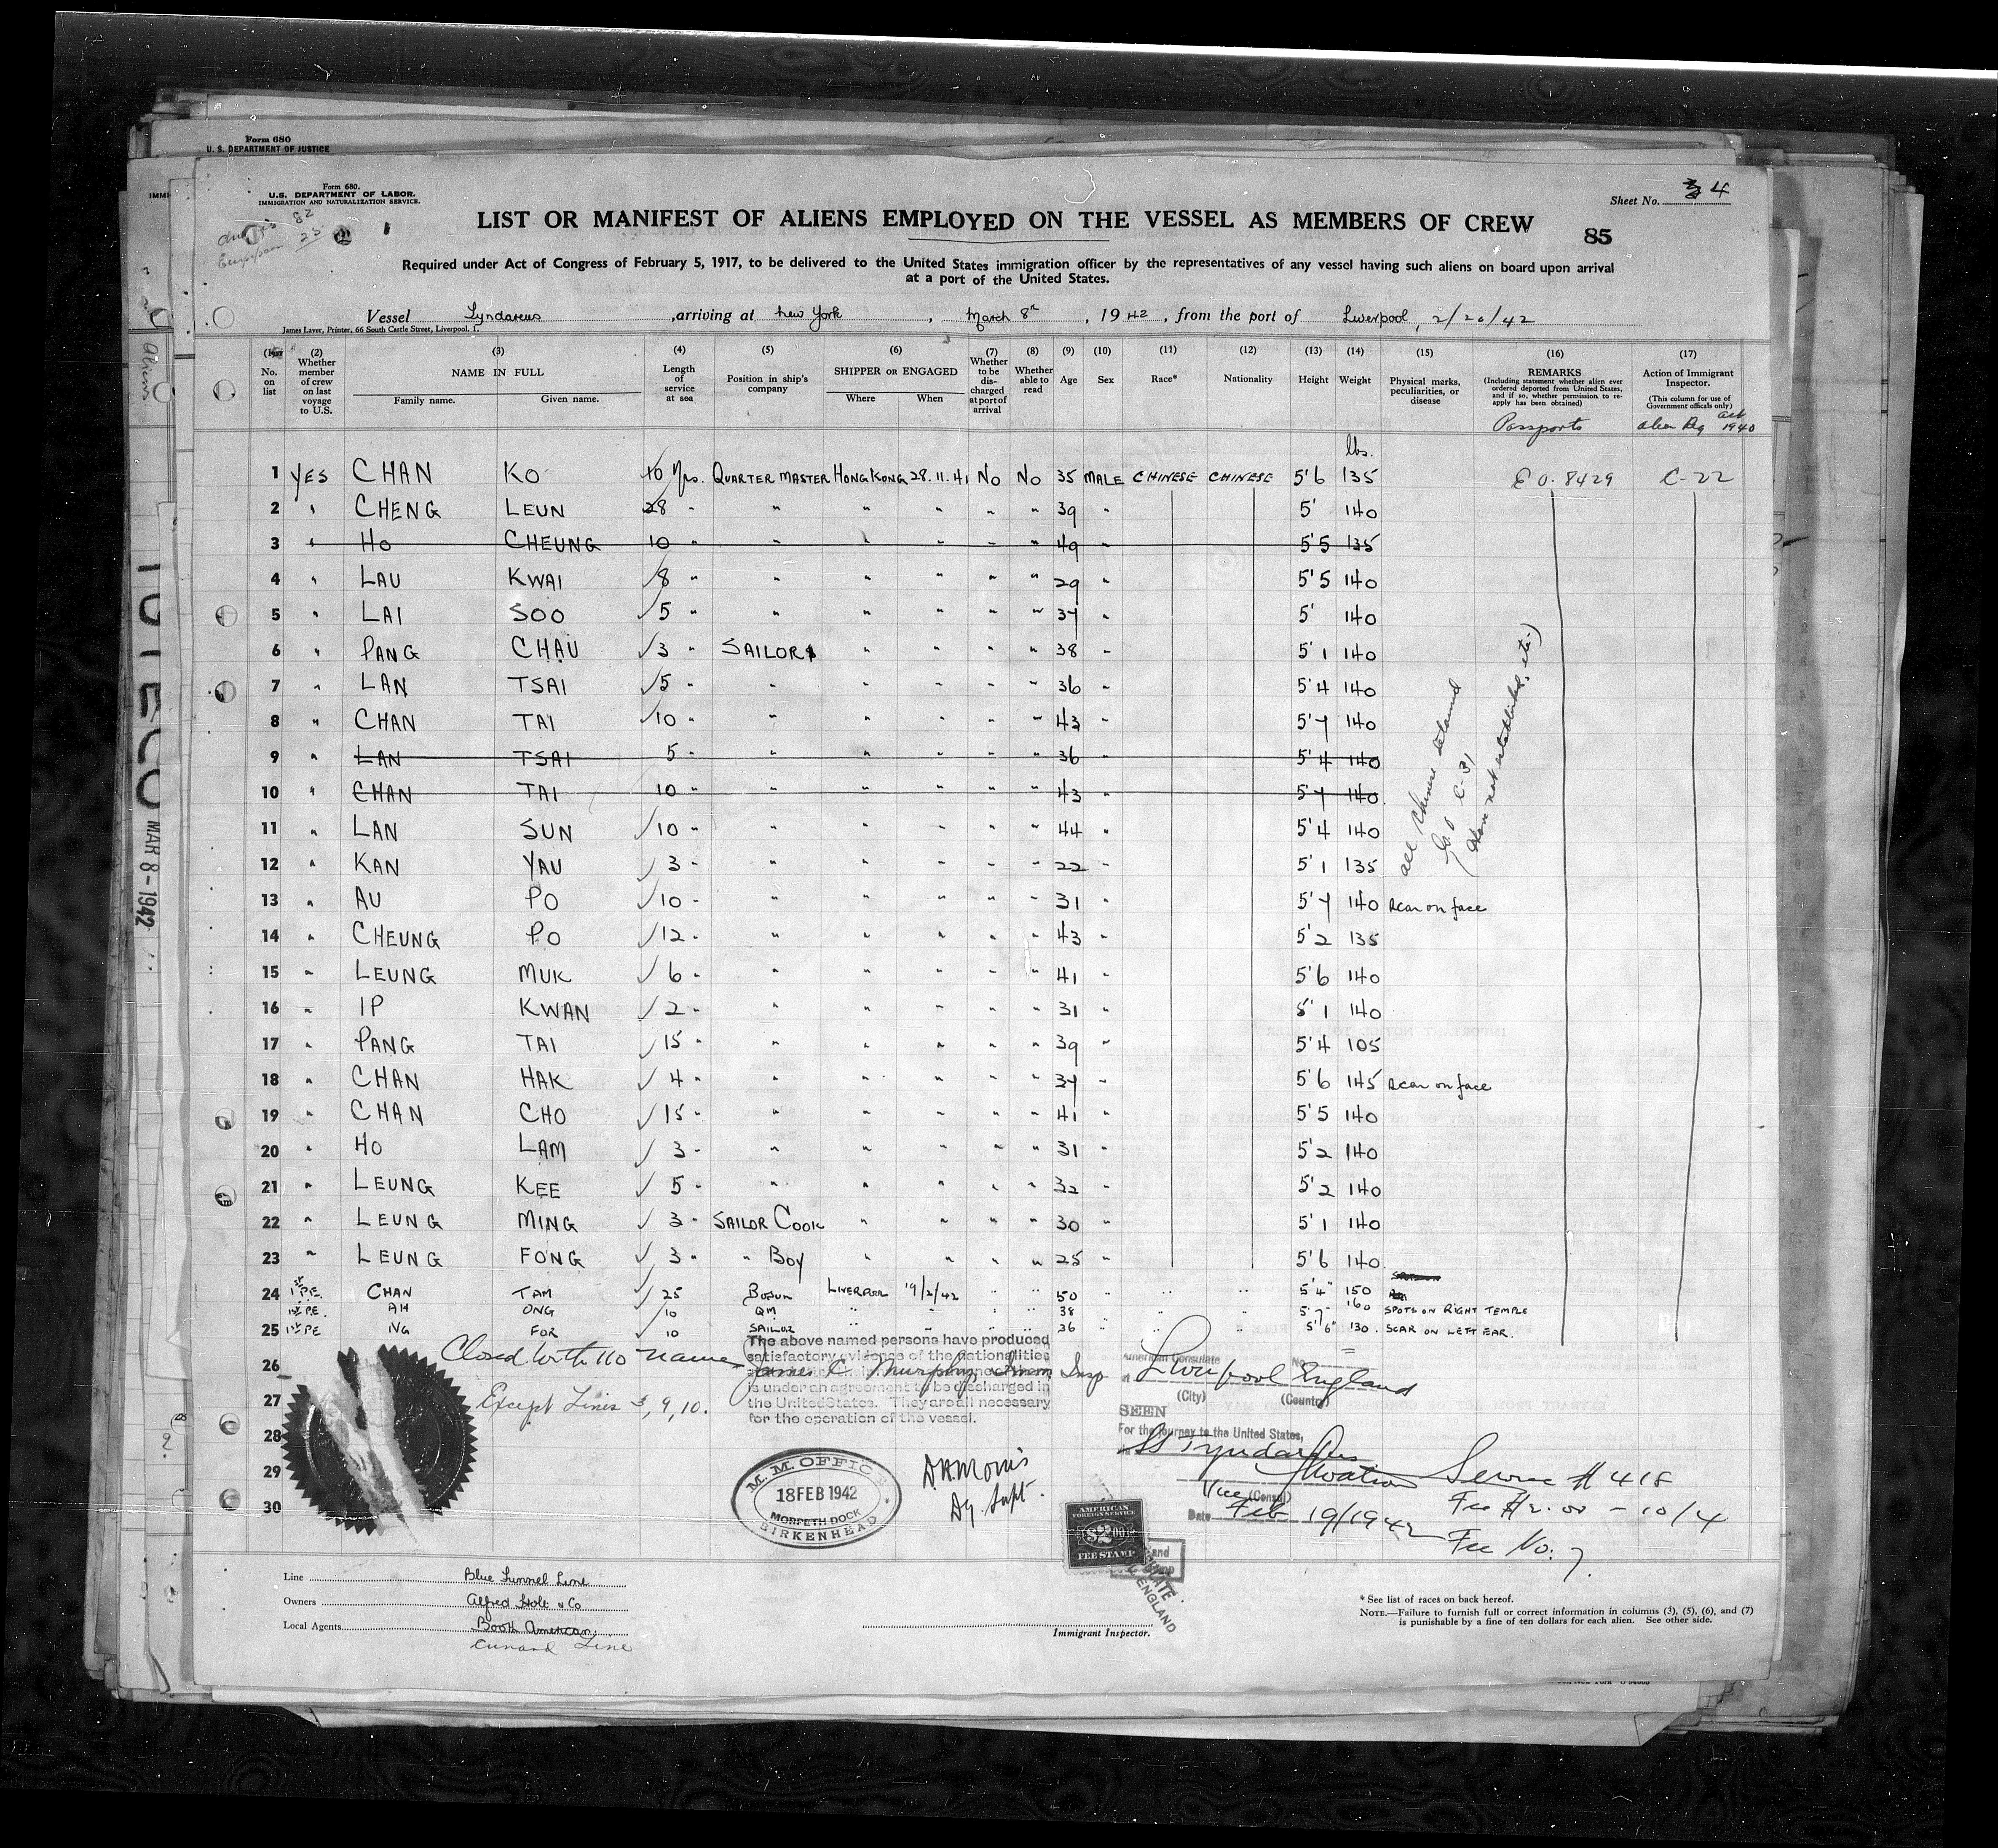 Form 680
U. S. DEPARTMENT OF JUSTICE
Form 680.
U.S. DEPARTMENT OF LABOR.
IMMIGRATION AND NATURALIZATION SERVICE.
Sheet No. 4
82
25
LIST OR MANIFEST OF ALIENS EMPLOYED ON THE VESSEL AS MEMBERS OF CREW
85
Required under Act of Congress of February 5, 1917, to be delivered to the United States immigration officer by the representatives of any vessel having such aliens on board upon arrival
at a port of the United States.
Vessel Tyndareus, arriving at New York, March 8th, 1942, from the port of Liverpool, 2/20/42
James Laver, Printer, 66 South Castle Street, Liverpool. 1.
(1) No. on list
(2) Whether member of crew on last voyage to U.S.
(3) NAME IN FULL Family name. Given name.
(4) Length of service at sea
(5) Position in ship's company
(6) SHIPPER OR ENGAGED Where When
(7) Whether to be discharged at port of arrival
(8) Whether able to read
(9) Age
(10) Sex
(11) Race*
(12) Nationality
(13) Height
(14) Weight
(15) Physical marks, peculiarities, or disease
(16) REMARKS (Including statement whether alien ever ordered deported from United States, and if so, whether permission to reapply has been obtained)
Passports
(17) Action of Immigrant Inspector. (This column for use of Government officials only)
Alien Reg Act 1940
lbs.
1 YES CHAN KO 10 Yrs. QUARTER MASTER HONG KONG 28.11.41 No No 35 MALE CHINESE CHINESE 5'6 135 E O. 8429 C-22
2 " CHENG LEUN 28 " " " " " " 39 " 5' 140
3 " HO CHEUNG 10 " " " " " " 49 " 5'5 135
4 " LAU KWAI 8 " " " " " " 29 " 5'5 140
5 " LAI SOO 5 " " " " " " 37 " 5' 140
6 " PANG CHAU 3 " SAILOR " " " " 38 " 5'1 140
7 " LAN TSAI 5 " " " " " " 36 " 5'4 140
8 " CHAN TAI 10 " " " " " " 43 " 5'7 140
9 " LAN TSAI 5 " " " " " " 36 " 5'4 140
10 " CHAN TAI 10 " " " " " " 43 " 5'7 140
11 " LAN SUN 10 " " " " " " 44 " 5'4 140
12 " KAN YAU 3 " " " " " " 22 " 5'1 135
13 " AU PO 10 " " " " " " 31 " 5'7 140 Scar on face
14 " CHEUNG PO 12 " " " " " " 43 " 5'2 135
15 " LEUNG MUK 6 " " " " " " 41 " 5'6 140
16 " IP KWAN 2 " " " " " " 31 " 5'1 140
17 " PANG TAI 15 " " " " " " 39 " 5'4 105
18 " CHAN HAK 4 " " " " " " 37 " 5'6 145 Scar on face
19 " CHAN CHO 15 " " " " " " 41 " 5'5 140
20 " HO LAM 3 " " " " " " 31 " 5'2 140
21 " LEUNG KEE 5 " " " " " " 32 " 5'2 140
22 " LEUNG MING 3 " SAILOR COOK " " " " 30 " 5'1 140
23 " LEUNG FONG 3 " " BOY " " " " 25 " 5'6 140
24 CHAN TAM 25 BOSUN LIVERPOOL 19/2/42 " " 50 " " " 5'4" 150
AH ONG 10 QM " " " " 38 " " " 5'7" 160 SPOTS ON RIGHT TEMPLE
25 NG FOR 10 SAILOR " " " " 36 " " " 5'6" 130. SCAR ON LEFT EAR.
all Chinese detained
C-31
26
27
28
29
30
Closed with 110 names
James C. Murphy Imm Insp
Except Lines 3, 9, 10.
The above named persons have produced
satisfactory evidence of the nationalities
is under an agreement to be discharged in
the United States. They are all necessary
for the operation of the vessel.
American Consulate No.
at Liverpool England
(City) (Country)
SEEN
For the journey to the United States,
SS Tyndareus
Vice (Consul)
Date Feb 19/1942
Service # 418
Fee $2.00 - 10/4
Fee No. 7
M. M. OFFICE
18 FEB 1942
MORPETH DOCK
BIRKENHEAD
Dy. Supt.
AMERICAN
FOREIGN SERVICE
$2.00
FEE STAMP
ENGLAND
Line Blue Funnel Line
Owners Alfred Holt & Co
Local Agents Booth American
Cunard Line
Immigrant Inspector.
* See list of races on back hereof.
NOTE.—Failure to furnish full or correct information in columns (3), (5), (6), and (7)
is punishable by a fine of ten dollars for each alien. See other side.
MAR 8 - 1942